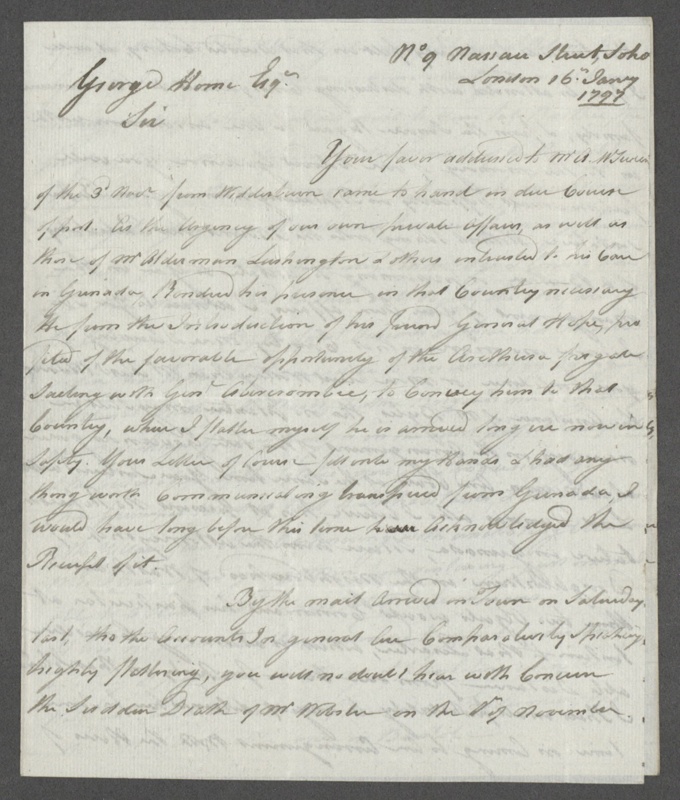 No 9 Nassau Street, Soho
London 16th Janry
1797
George Home Esqr.
Sir
Your favor addressed to Mr A. McTurner
of the 3d Novr. from Wedderburn came to hand in due Course
of post. As the Urgency of our own private Affairs, as well as
those of Mr Alderman Lushington & others intrusted to his Care
in Grenada, Rendred his presence in that Country necessary
He from the Introduction of his friend General Hope, pro
fited of the favorable opportunity of the Arethusa frigate
Sailing with Genl. Abercrombie, to Convey him to that
Country, where I flatter myself he is arrived long ere now in
Safety. Your Letter of Course fell into my Hands & had any
thing worth Communicating transpired from Grenada, I
would have long before this time Acknowledged the
Receipt of it.
By the mail arrived in Town on Saturday
last, tho the Accounts In general are Comparatively Speaking
heighly flattering, you will no doubt hear with Concern
the Sudden Death of Mr Webster on the of November.